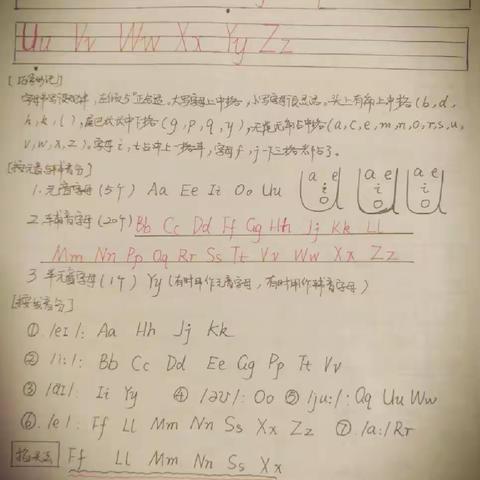 Uu Vv Ww Xx Yy Zz
[巧写妙记]
字母书写没难事,左倾5°正合适。大写字母上中格,小写字母很灵活。头上有角上中格(b,d,
h,k,l),尾巴 中下格(g,p,q,y),无尾无角占中格(a,c,e,m,n,o,r,s,u,
v,w,x,z)。字母i,t占中上一格半,字母f,j一下三格都占了。
[按元音与辅音分]
1.元音字母(5个) Aa Ee Ii Oo Uu a e i o a e i o a e i o
2.辅音字母(20个) Bb Cc Dd Ff Gg Hh Jj Kk Ll
Mm Nn Pp Qq Rr Ss Tt Vv Ww Xx Zz
3.半元音字母(1个) Yy (有时用作元音字母,有时用作辅音字母)
[按发音分]
①./eɪ/: Aa Hh Jj Kk
② /i:/: Bb Cc Dd Ee Gg Pp Tt Vv
③ /aɪ/: Ii Yy ④ /əʊ/: Oo ⑤ /ju:/: Qq Uu Ww
⑥./e/: Ff Ll Mm Nn Ss Xx Zz ⑦./a:/ Rr
Ff Ll Mm Nn Ss Xx